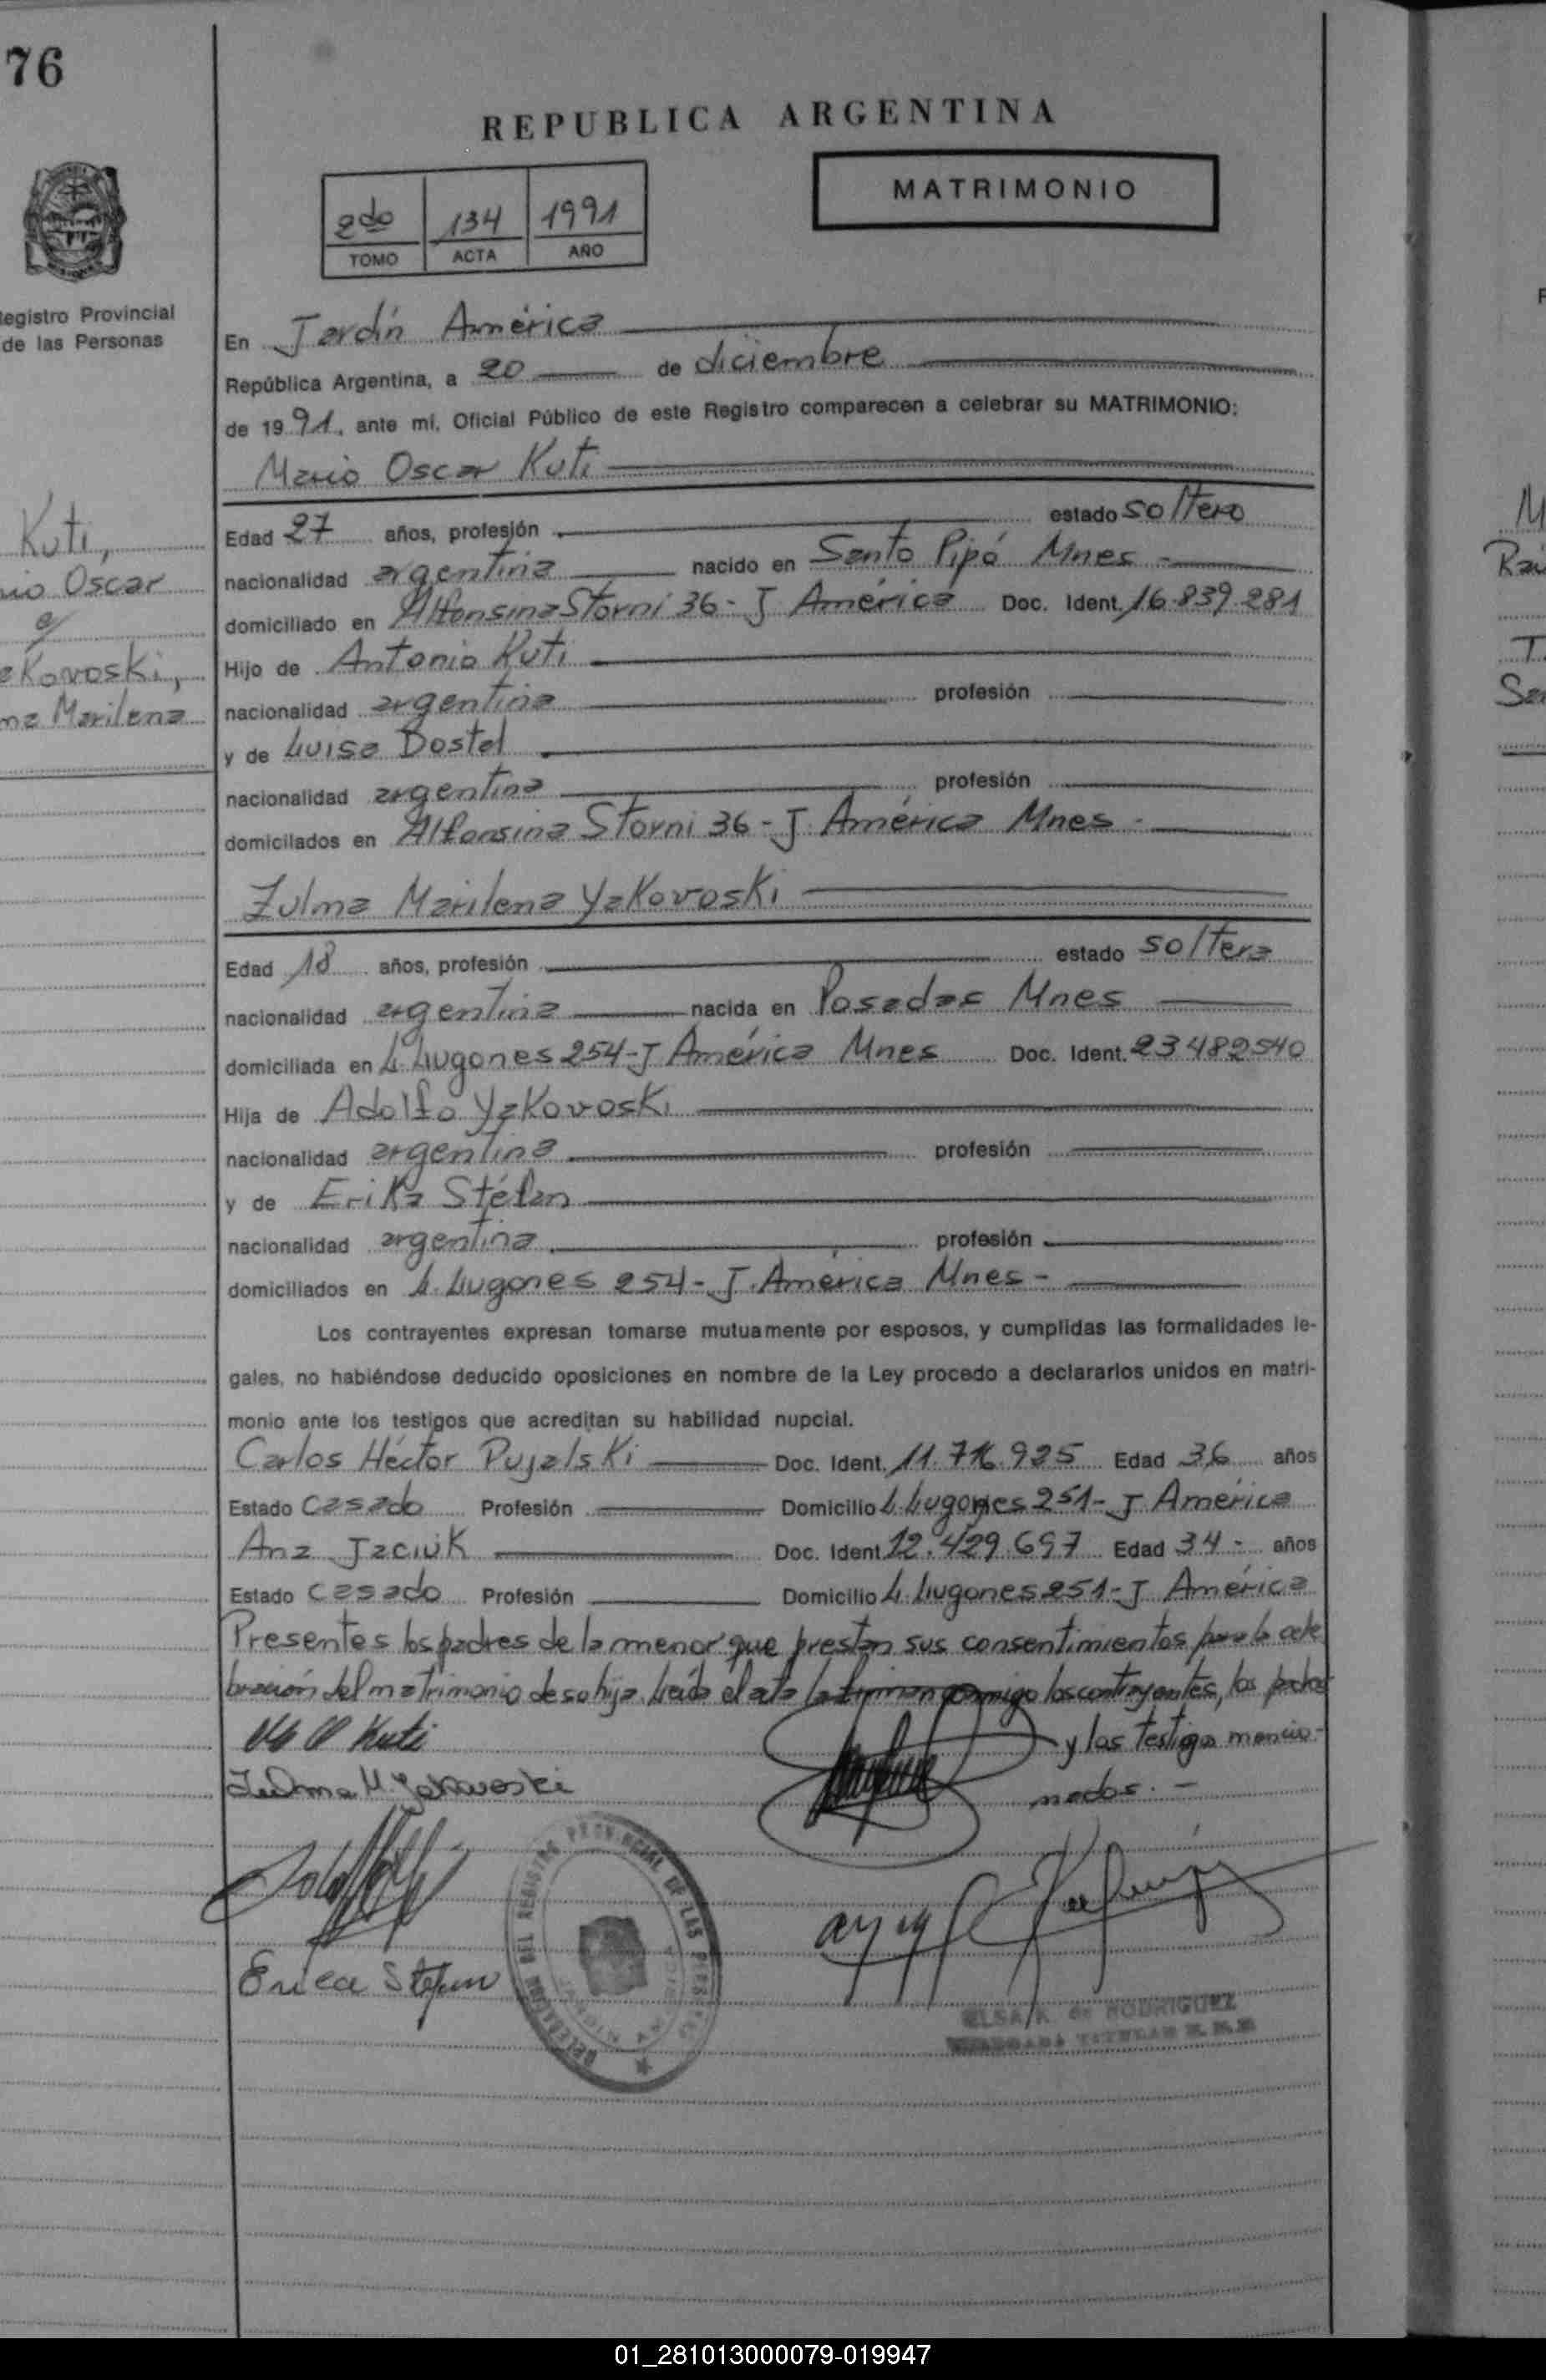 76
REPUBLICA ARGENTINA
MATRIMONIO
2do 134 1991
TOMO ACTA AÑO
Registro Provincial
de las Personas
En Jardín América
República Argentina, a 20 de diciembre
de 1991, ante mí, Oficial Público de este Registro comparecen a celebrar su MATRIMONIO:
Mario Oscar Kuti
Edad 27 años, profesión estado soltero
nacionalidad argentina nacido en Santo Pipó Mnes -
domiciliado en Alfonsina Storni 36 - J América Doc. Ident. 16.839.281
Hijo de Antonio Kuti
nacionalidad argentina profesión
y de Luisa Dostal
nacionalidad argentina profesión
domicilados en Alfonsina Storni 36 - J. América Mnes -
Kuti,
rio Oscar
c/
akovoski,
ma Marilena
Zulma Marilena Yakovoski
Edad 18 años, profesión estado soltera
nacionalidad argentina nacida en Posadas Mnes
domiciliada en L. Lugones 254 - J América Mnes Doc. Ident. 23482540
Hija de Adolfo Yakovoski
nacionalidad argentina profesión
y de Erika Stéfan
nacionalidad argentina profesión
domiciliados en L. Lugones 254 - J. América Mnes -
Los contrayentes expresan tomarse mutuamente por esposos, y cumplidas las formalidades le-
gales, no habiéndose deducido oposiciones en nombre de la Ley procedo a declararlos unidos en matri-
monio ante los testigos que acreditan su habilidad nupcial.
Carlos Héctor Pujalski Doc. Ident. 11.716.925 Edad 36 años
Estado Casado Profesión Domicilio L. Lugones 251 - J América
Ana Jaciuk Doc. Ident 12.429.697 Edad 34 - años
Estado casado Profesión Domicilio L. Lugones 251 - J América
Presentes los padres de la menor que prestan sus consentimientos para la cele
bración del matrimonio de su hija. Leída el acta la firman conmigo los contrayentes, los padres
y los testigos mencio-
nados. -
Kuti
Zulma M. Yakovoski
Erica Stefan
DELEGACION DEL REGISTRO PROVINCIAL DE LAS PERSONAS
ELSA K. de RODRIGUEZ
01_281013000079-019947